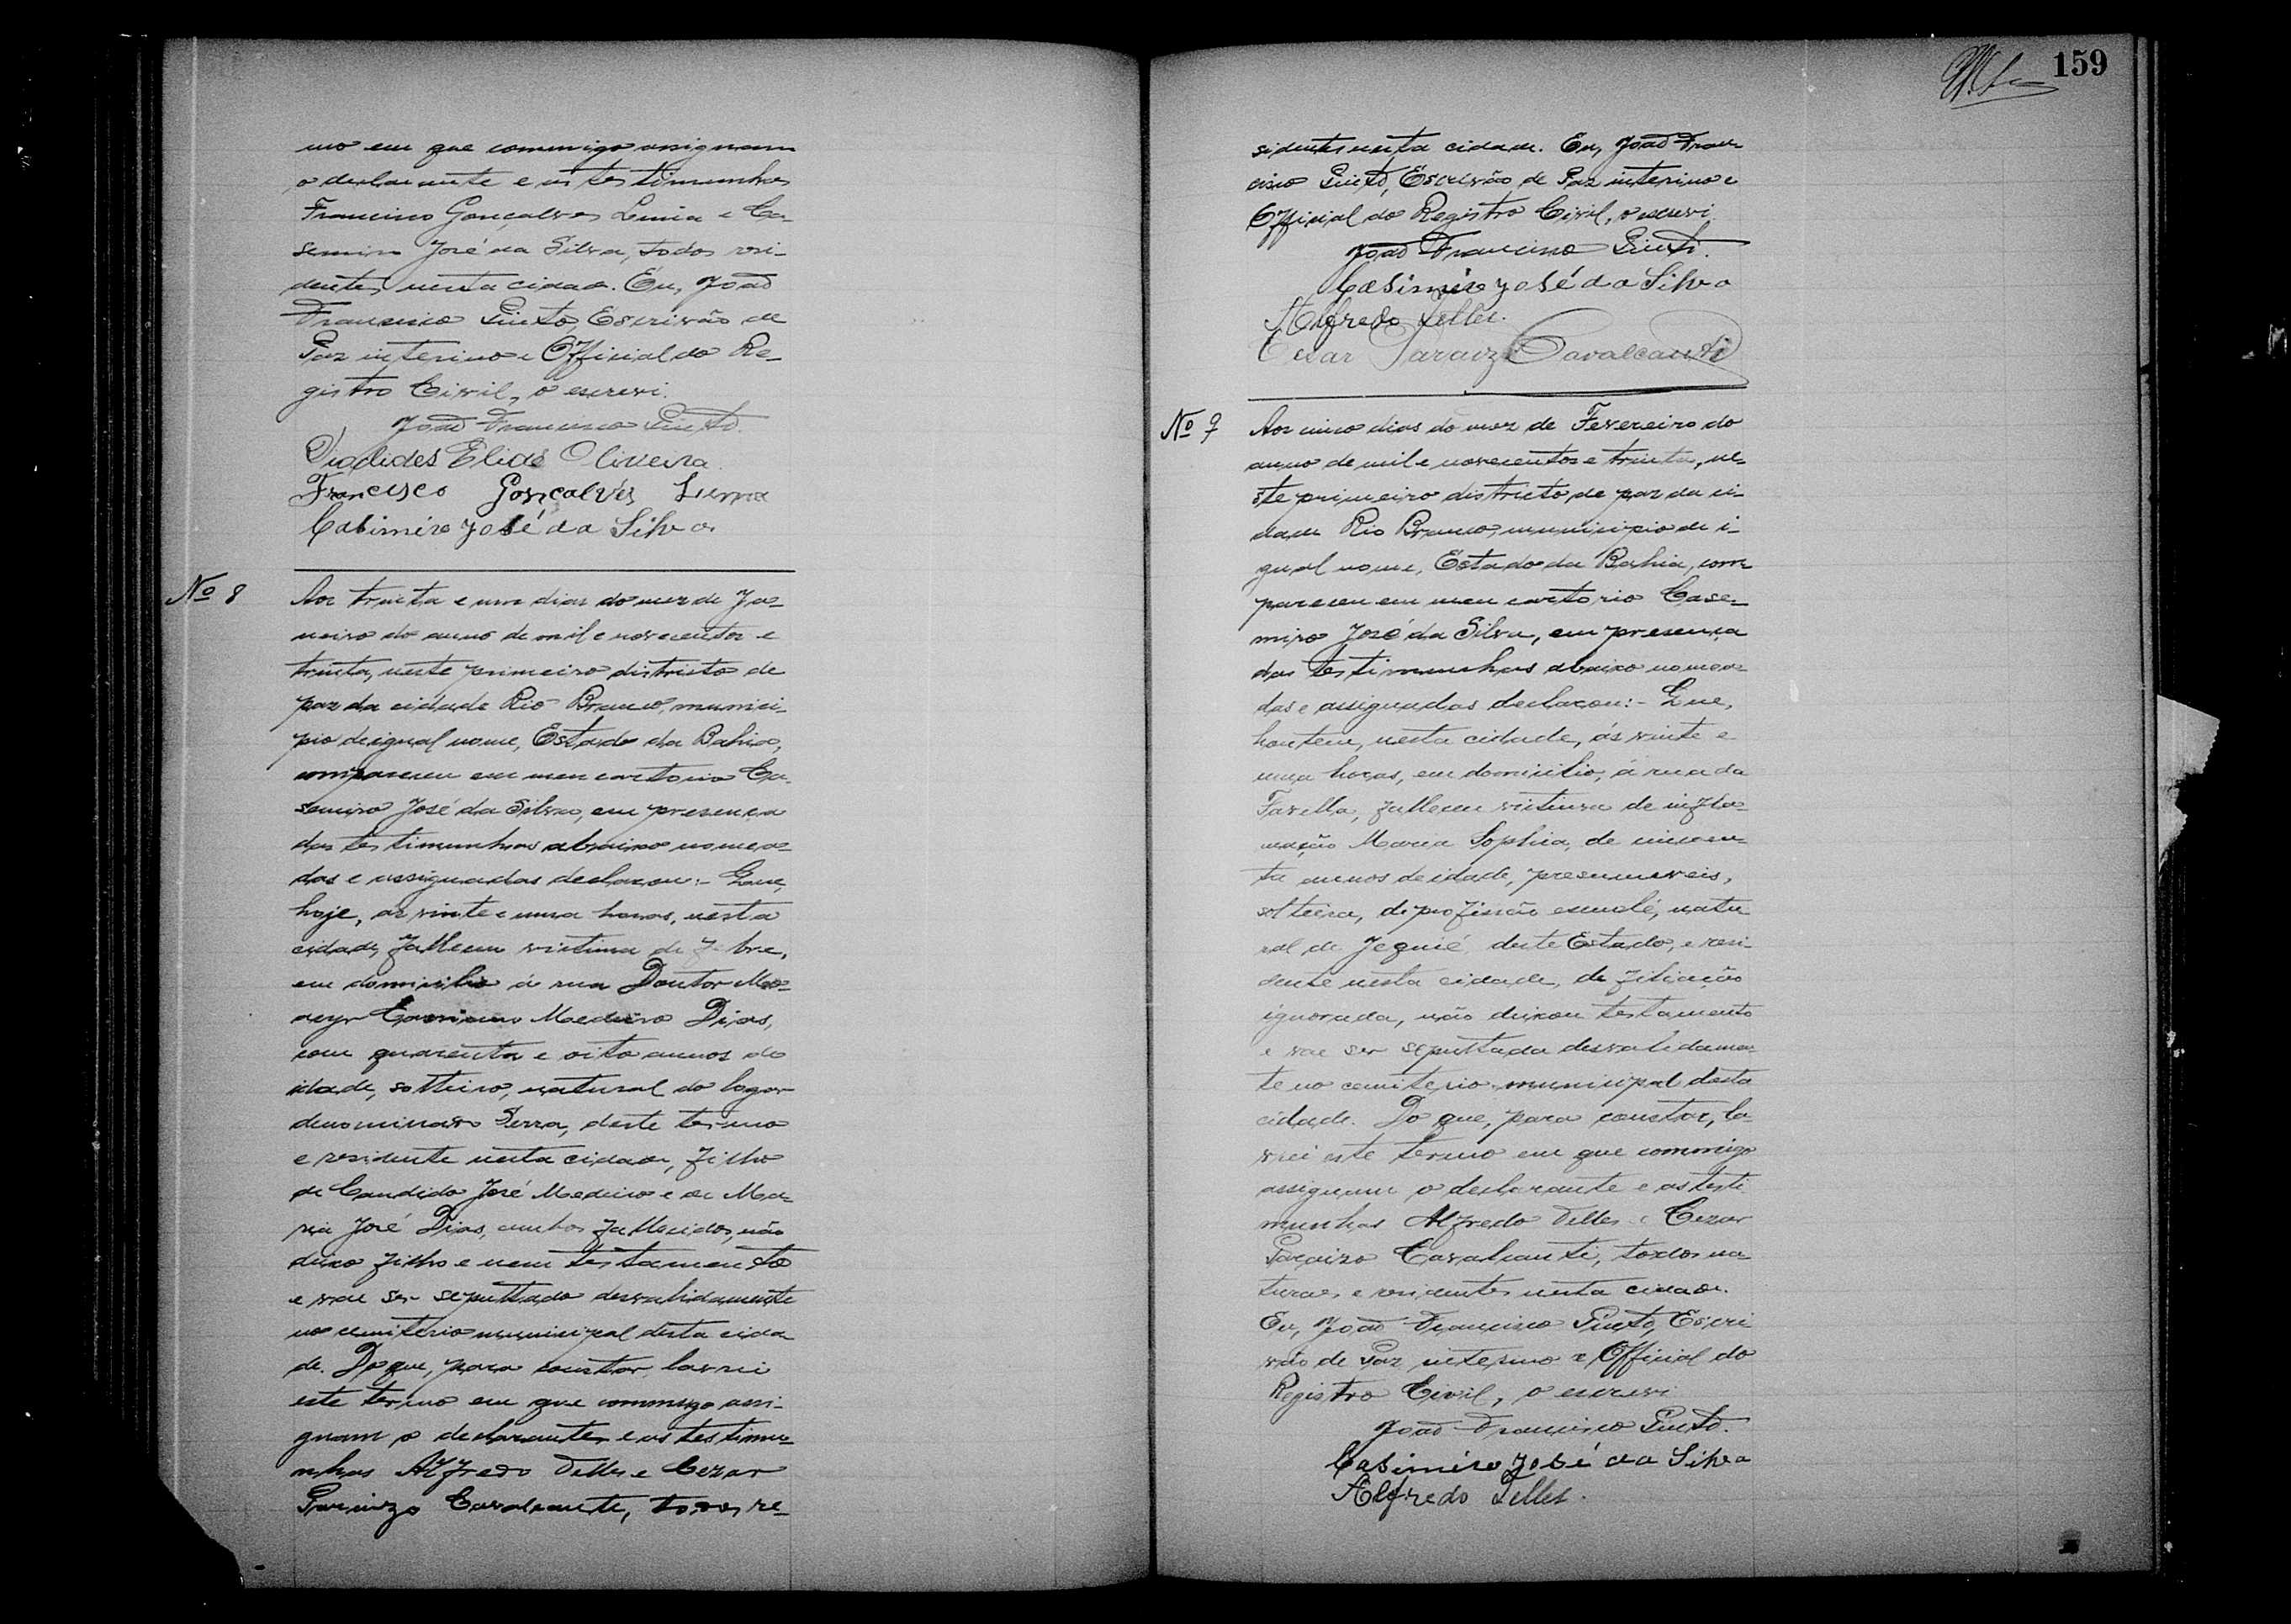 mo em que commigo assignam
o declarante e as testimunhas
Francisco Gonçalves Lima e Ca-
semiro José da Silva, todos resi-
dentes nesta cidade. Eu, João
Francisco Pinto, Escrivão de
Paz interino e Official do Re-
gistro Civil, o escrevi.
João Francisco Pinto.
Elias Oliveira.
Francisco Gonçalves
Casimiro José da Silva
Nº 8
Aos trinta e um dias do mez de Ja-
neiro do anno de mil e novecentos e
trinta, neste primeiro districto de
paz da cidade Rio Branco, munici-
pio de igual nome, Estado da Bahia,
compareceu em meu cartorio Ca-
semiro José da Silva, em presença
das testimunhas abaixo nomea-
das e assignadas declarou:- Que,
hoje, as vinte e uma horas, nesta
cidade, falleceu victima de febre,
em domicilio á rua Doutor
Medeiro Dias,
com quarenta e oito annos de
idade, solteiro, natural do logar
denominado Serra, deste termo
e residente nesta cidade, filho
de Candido José Medeiro e de Ma-
ria José Dias, ambos fallecidos, não
deixo filho e nem testamento
e vae ser sepultado desvalidamente
no cemiterio municipal desta cida-
de. Do que, para constar lavrei
este termo em que commigo assi-
gnam o declarante e as testimu-
nhas Alfredo Telles e Cezar
Paraizo Cavalcante, todos re-
159
sidentes nesta cidade. Eu, João Fran-
cisco Pinto, Escrivão de Paz interino e
Official do Registro Civil, o escrevi.
João Francisco Pinto.
Casimiro José da Silva
Alfredo Telles.
Cesar Paraizo Cavalcanti
Nº 9
Aos cinco dias do mez de Fevereiro do
anno de mil e novecentos e trinta, ne-
ste primeiro districto de paz da ci-
dade Rio Branco, municipio de i-
gual nome, Estado da Bahia, com-
pareceu em meu cartorio Case-
miro José da Silva, em presença
das testimunhas abaixo nomea-
das e assignadas declarou:- Que,
hontem, nesta cidade, ás vinte e
uma horas, em domicilio, á rua da
Favella, falleceu victima de infla-
mação Maria Sophia, de cincoen-
ta annos de idade, presumiveis,
solteira, de profissão natu-
ral de Jequié deste Estado, e resi-
dente nesta cidade, de filiação
ignorada, não deixou testamento
e vae ser sepultada desvalidamen-
te no cemiterio municipal desta
cidade. Do que, para constar, la-
vrei este termo em que commigo
assignam o declarante e as testi
munhas Alfredo Telles e Cezar
Paraizo Cavalcanti, todos na-
turaes e residentes nesta cidade.
Eu, João Francisco Pinto, Escri
vão de Paz interino e Official do
Registro Civil, o escrevi
João Francisco Pinto.
Casimiro José da Silva
Alfredo Telles.